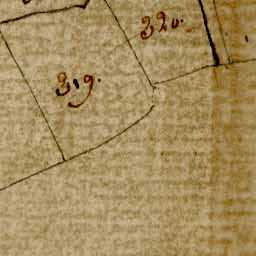 320.
319.